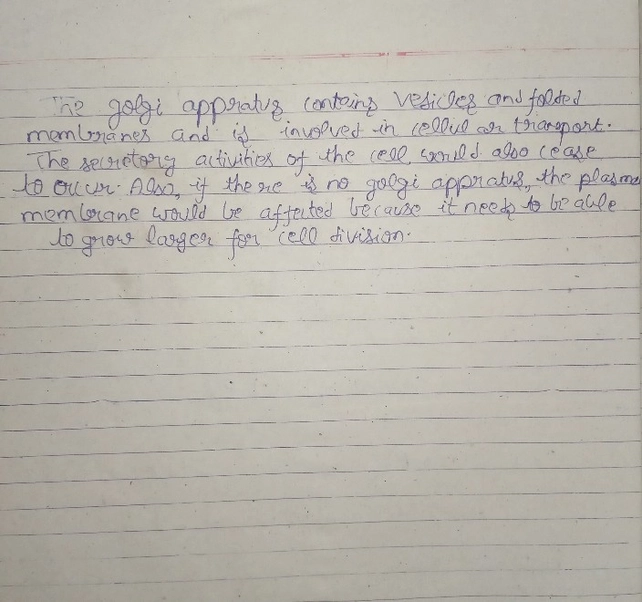 The golgi appratus contains vesicles and folded
membranes and is involved in cellular transport.
The secretory activities of the cell would also cease
to occur. Also, if there is no golgi appratus, the plasma
membrane would be affected because it needs to be able
to grow larger for cell division.